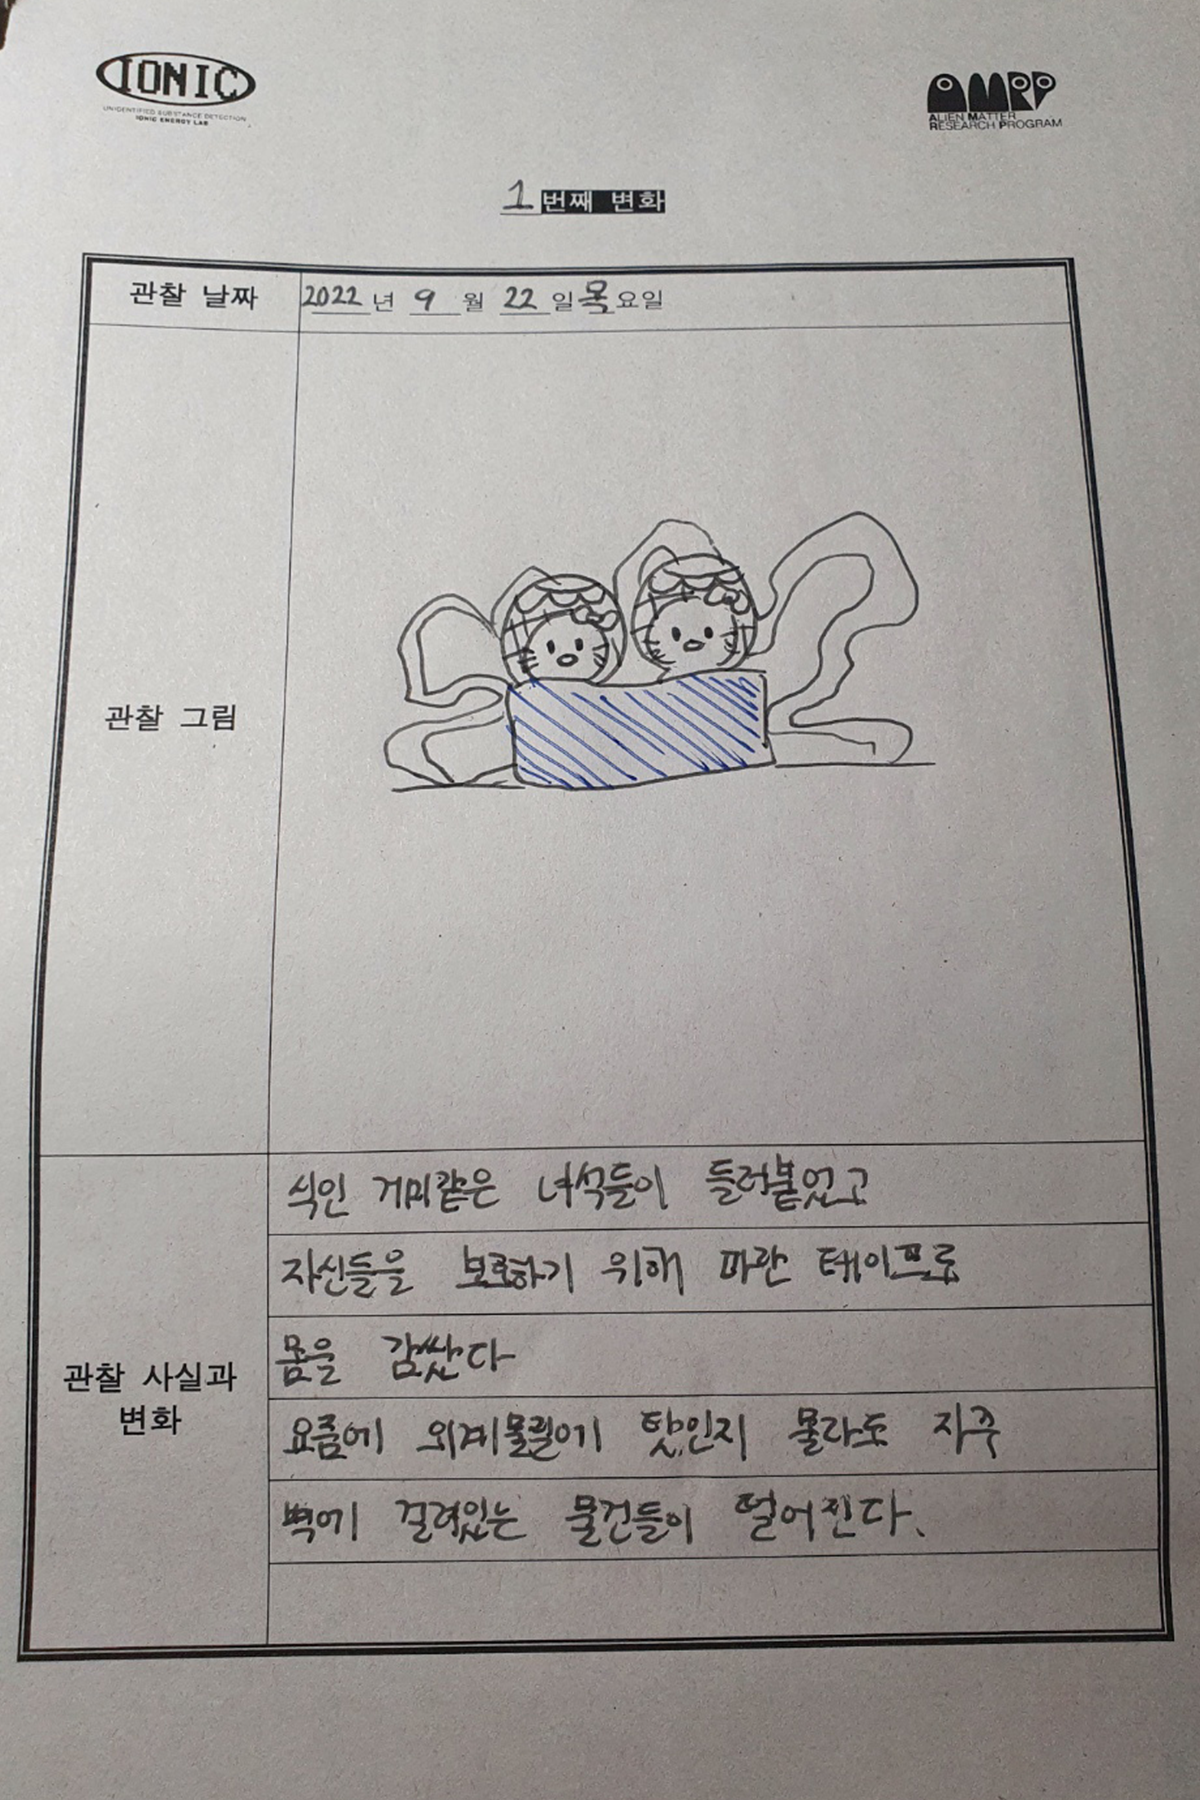 IONIC
UNIDENTIFIED SUBSTANCE DETECTION
IONIC ENERGY LAB
AMRP
ALIEN MATTER
RESEARCH PROGRAM
1번째 변화
관찰 날짜 2022년 9월 22일 목요일
관찰 그림
관찰 사실과
변화
식인 거미같은 녀석들이 들러붙었고
자신들을 보호하기 위해 파란 테이프로
몸을 감쌌다
요즘에 외계물질에 탓인지 몰라도 자주
벽에 걸려있는 물건들이 떨어진다.